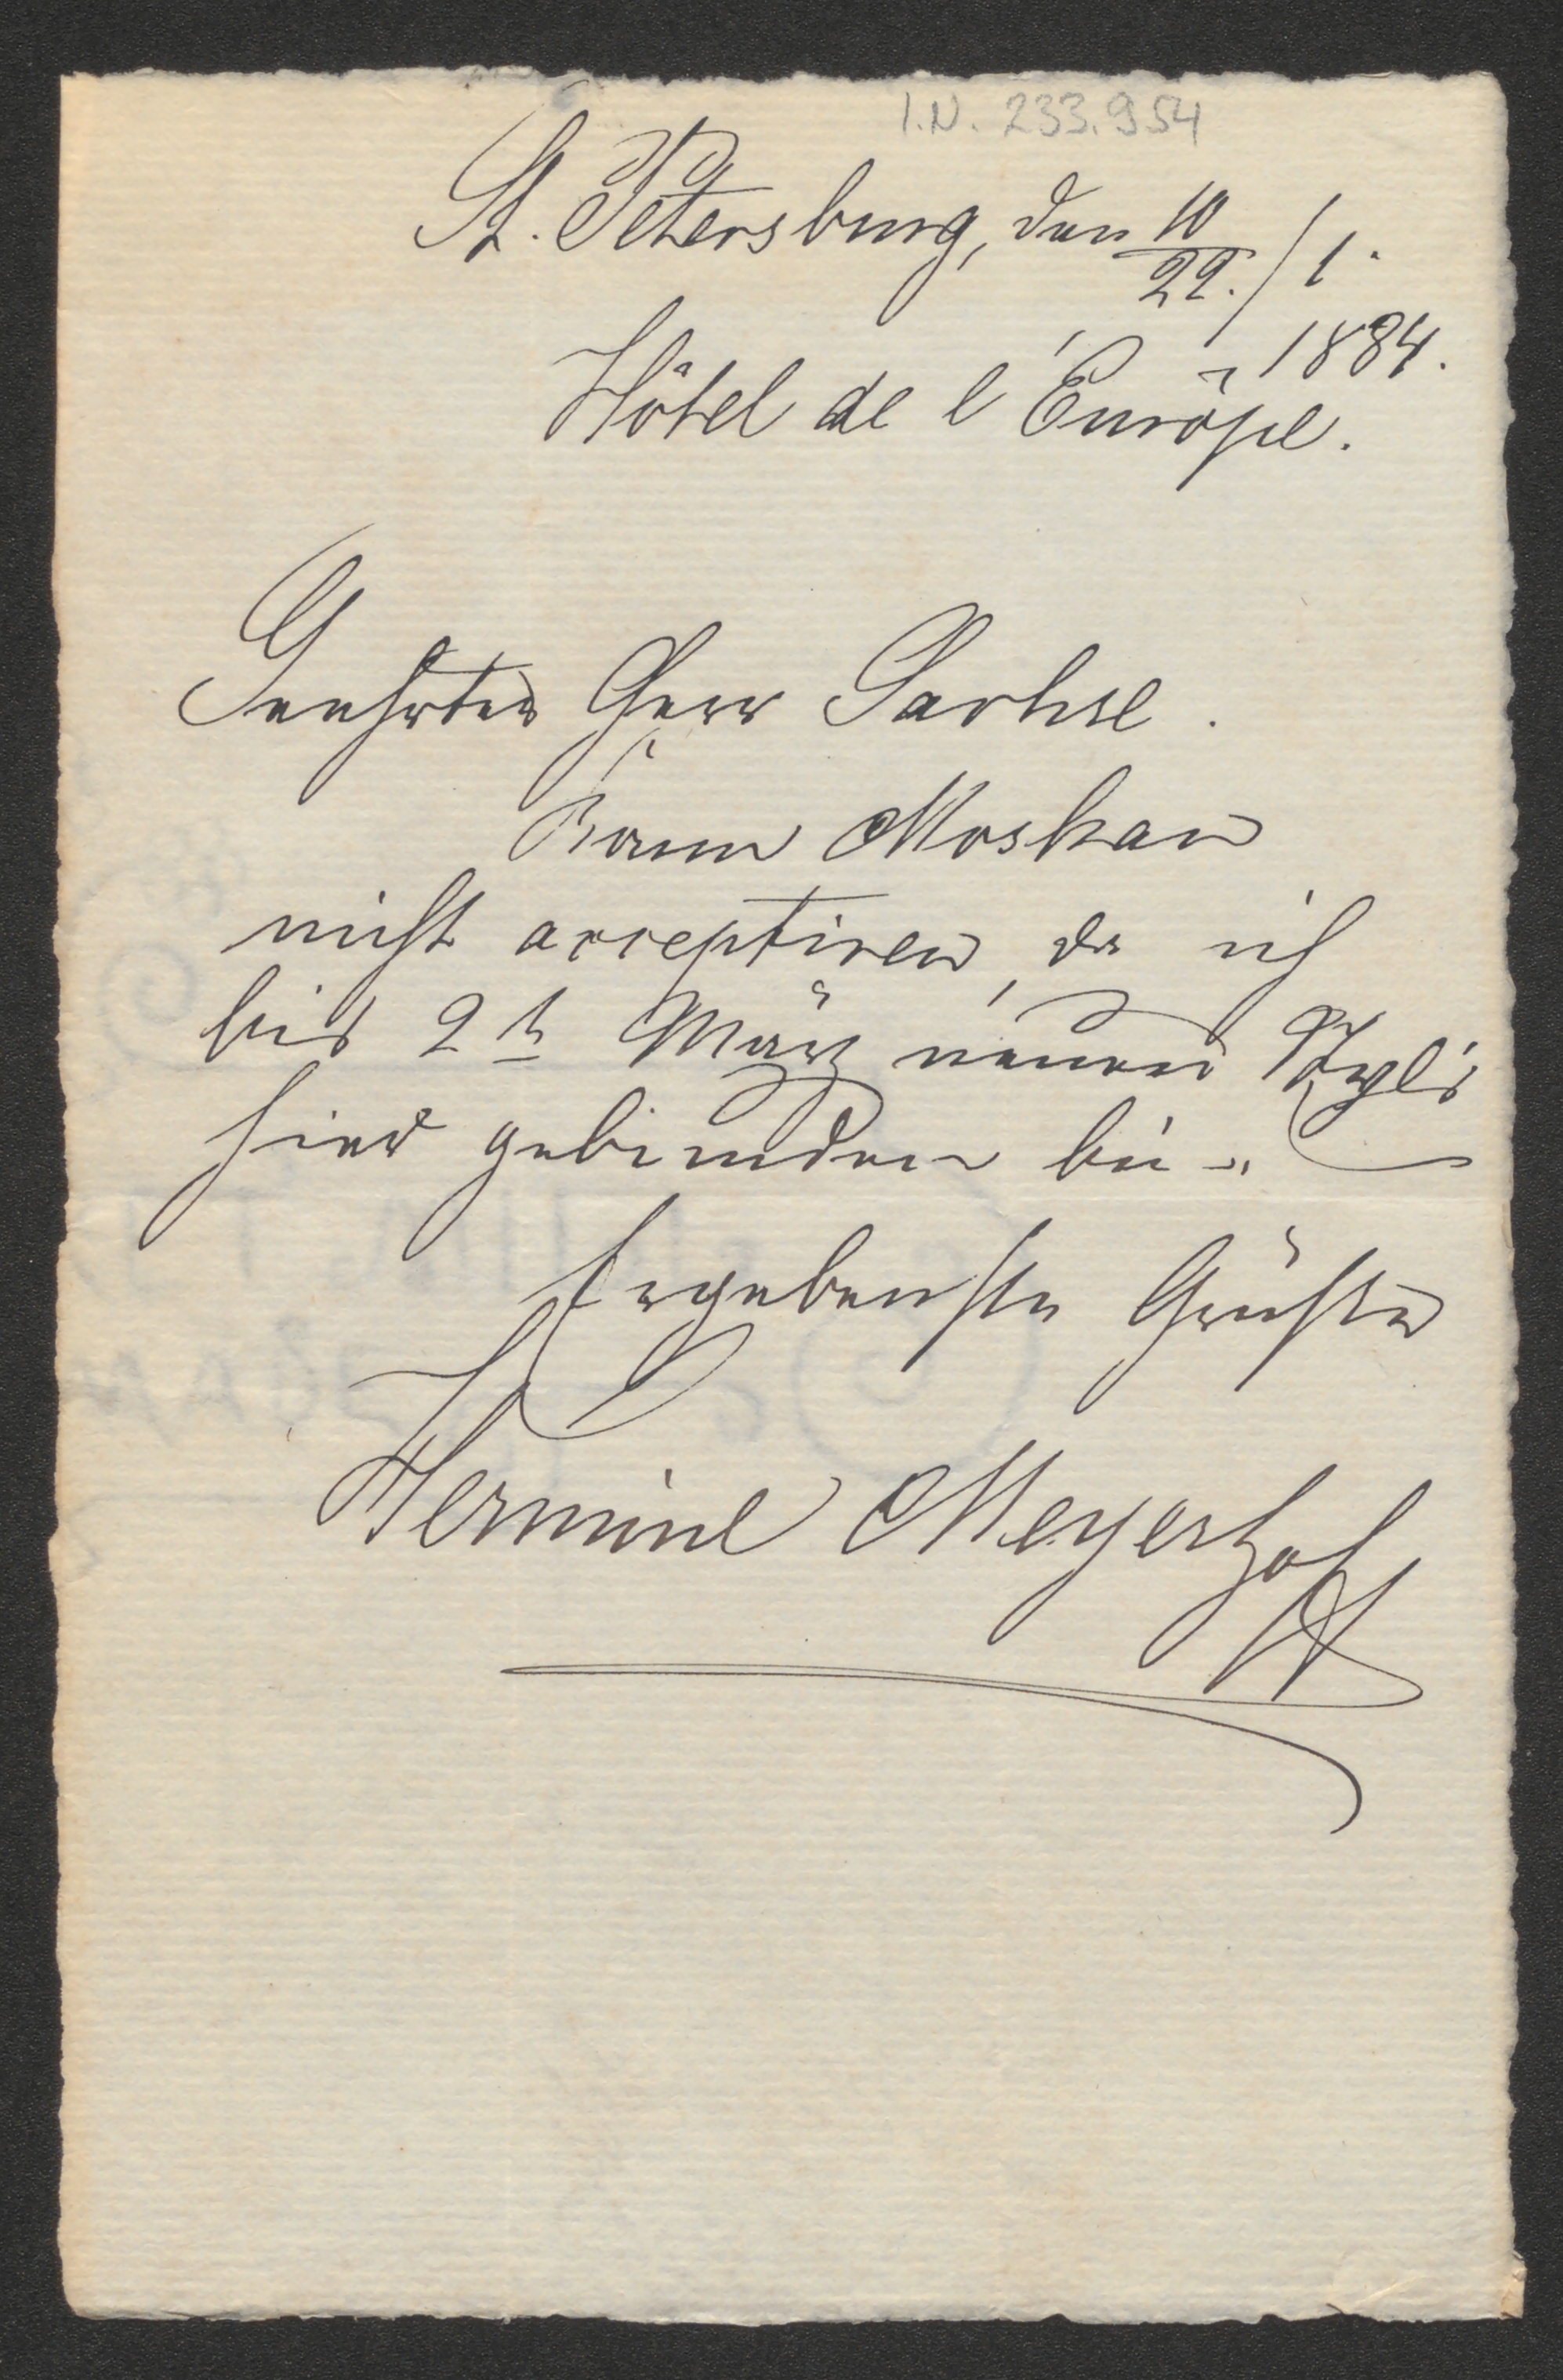 I.N. 233.954
St. Petersburg, den 10/22./1.
1884.
Hôtel de l'Europe.
Geehrter Herr Sachse.
Kann Moskau
nicht acceptiren, da ich
bis 2t März neuen Styls
hier gebunden bin.
Ergebenste Grüße
Hermine Meyerhoff